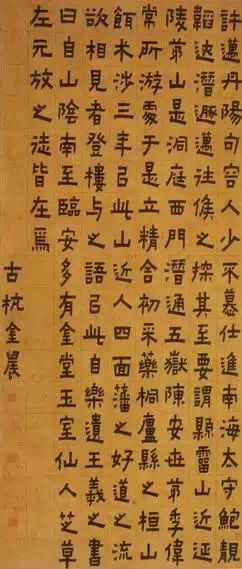 許邁丹陽句容少不慕仕進南海太守鮑靚
韜迹潛遯邁往候之探其至要謂縣霤山近延
陵茅山是洞庭西門潛通五嶽陳安世茅季偉
常所游處于是立精舍初采藥桐廬縣之桓山
餌朮涉三年㠯此山近人四面藩之好道之流
欲相見者登樓与之語㠯此自樂遺王羲之書
曰自山陰南至臨安多有金堂玉室仙人芝草
左元放之徒皆在焉
古杭金農